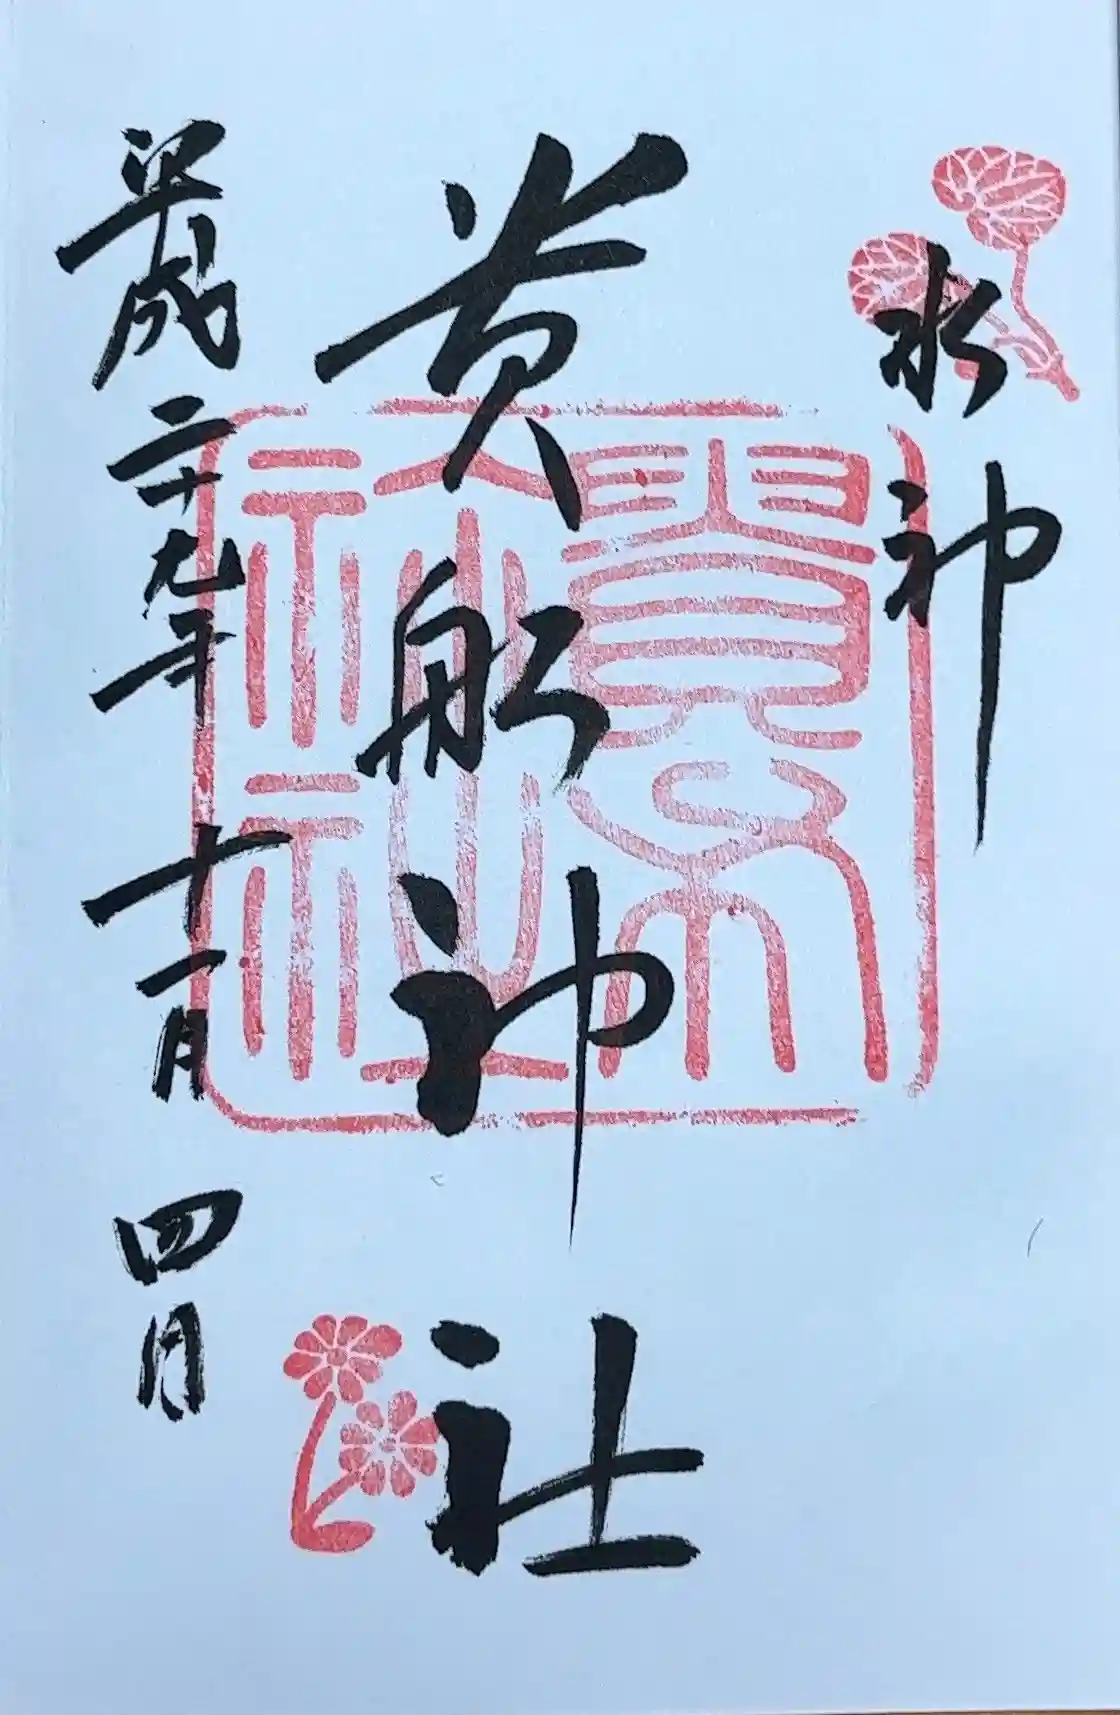 水神
貴船神社
平成二十九年十一月四日